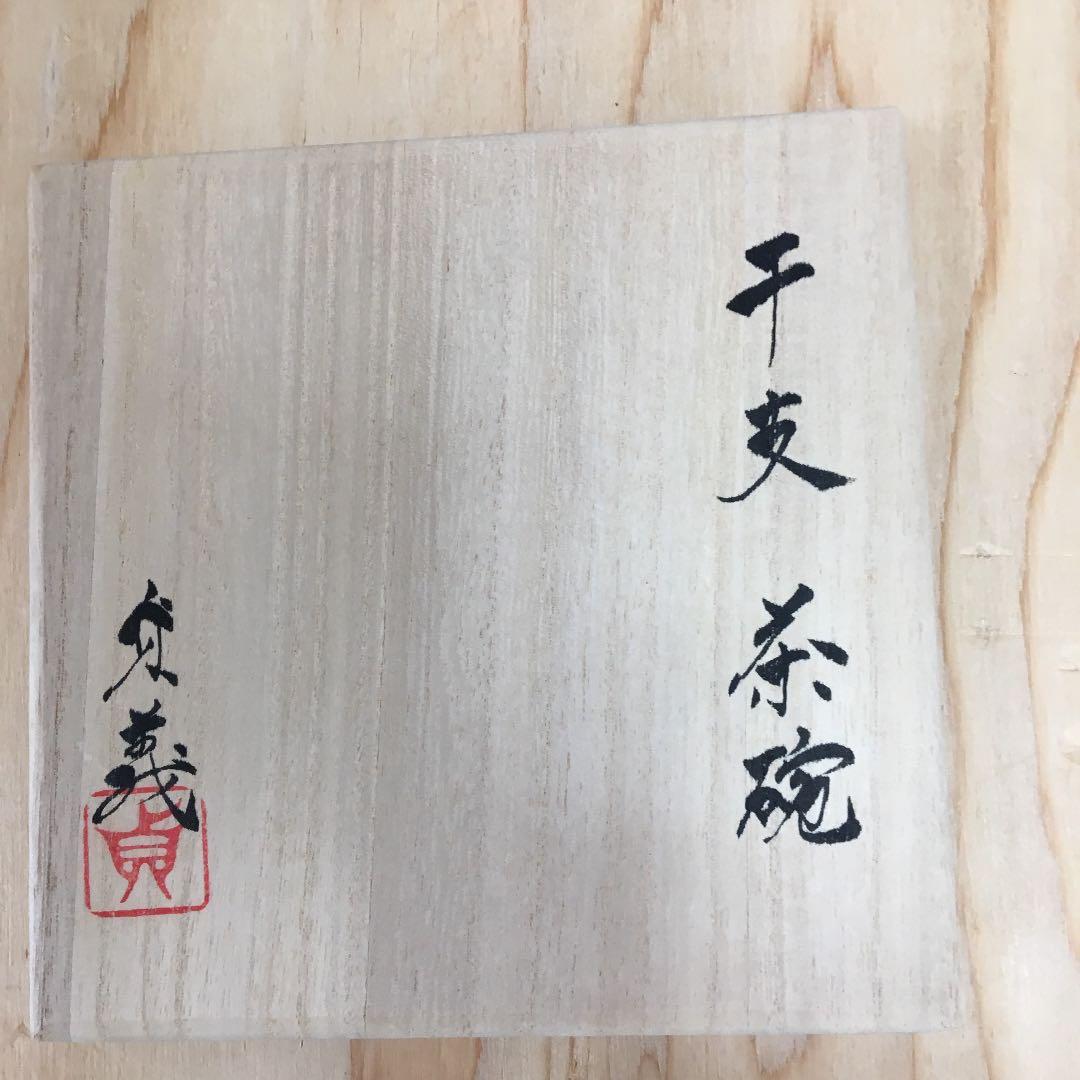 干支 茶碗
貞義
貞